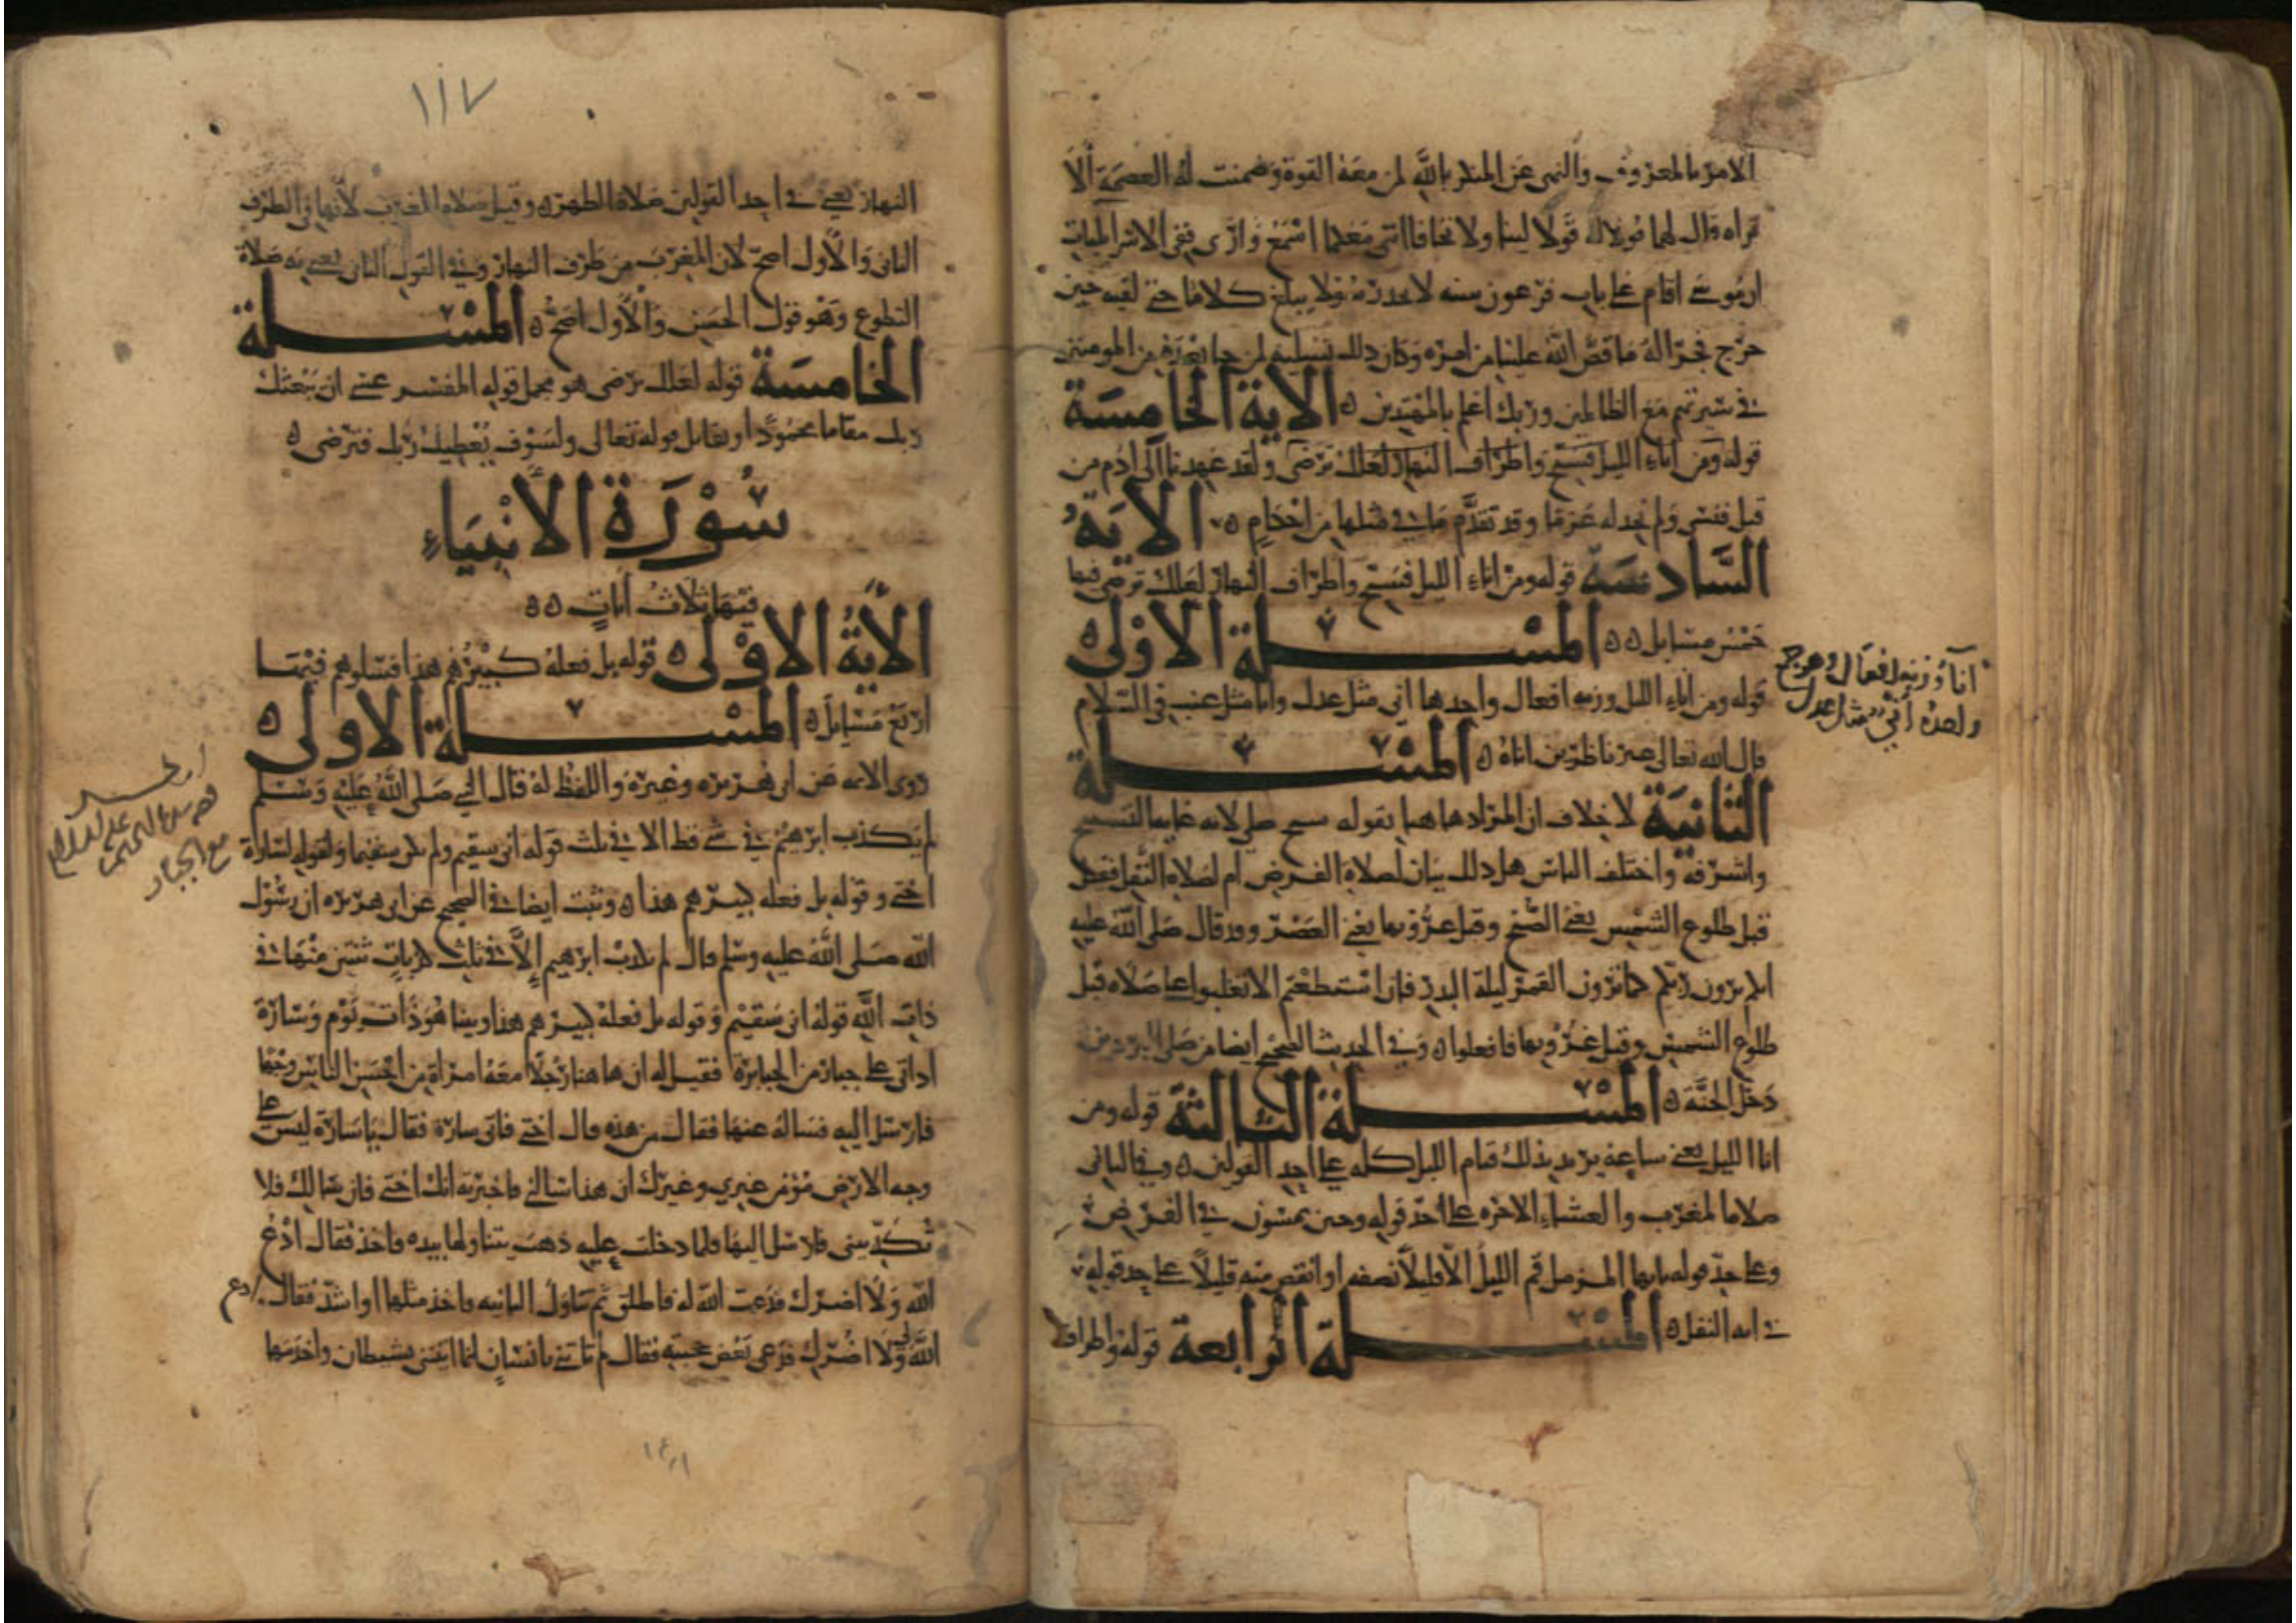 الامر بالمعروف والنهى عن المنكر باللّه لمن معه القوة وضمنت له العصمة ألا
تراه قال لهما قولا له قولا لينا ولا تخافا اننى معكما اسمع وارى ففى الاسرائيليات
ان موسى اقام على باب فرعون سنه لا يجد رسولا يبلغ كلاما حتى لقيه حين
خرج فجرى له ما قص الله علينا من امره وكان ذلك تسلية لمن جا بعده من المومنين
فى سيرتهم مع الظالمين وربك اعلم بالمهتدين ه الاية الخامسة
قوله ومن اناء الليل فسبح واطراف النهار لعلك ترضى ولقد عهدنا الى ادم من
قبل فنسى ولم نجد له عزما وقد تقدم ما فى مثلها من احكام ه الاية
السادسة قوله ومن اناء الليل فسبح واطراف النهار لعلك ترضى فيها
خمس مسايل ه ه المسلة الاولى ه
قوله ومن اناء الليل وزنه افعال واحدها انى مثل عدل وانا مثل عنب فى السلام
قال الله تعالى غير ناظرين اناه ه المسلة
الثانية لا خلاف ان المراد هاهنا بقوله سبح صلى لانه غاية التسبيح
واشرفه واختلف الناس هل ذلك بيان لصلاة الفرض ام لصلاة النفل فقيل
قبل طلوع الشمس يعنى الصبح وقبل غروبها يعنى العصر وقد قال صلى الله عليه
انكم ترون ربكم كما ترون القمر ليلة البدر فان استطعتم الا تغلبوا على صلاه قبل
طلوع الشمس وقبل غروبها فافعلوا ه وفى الحديث الصحيح ايضا من صلى البردين
دخل الجنة ه المسلة الثالثة قوله ومن
انا الليل يعنى ساعاته يريد بذلك قيام الليل كله على احد القولين ه وفى الثانى
صلاة المغرب والعشاء الاخره على حد قوله وحين تمسون فى الفرض
وعلى حد قوله يايها المزمل قم الليل الا قليلا نصفه او انقص منه قليلا على حد قوله
فى ايه النفل ه المسلة الرابعة قوله واطراف
اناء وزنه افعال وهو جمع
واحده انى مثل عدل
١١٧
النهار يعنى فى احد القولين صلاة الظهر ه وقيل صلاه المغرب لانها فى الطرف
الثانى والاول اصح لان المغرب من طرف النهار وفى القول الثانى يعنى به صلاة
التطوع وهو قول الحسن والاول اصح ه المسلة
الخامسة قوله لعلك ترضى هو مجمل قوله المفسر عسى ان يبعثك
ربك مقاما محمودا ويقابل قوله تعالى ولسوف يعطيك ربك فترضى ه
سُوْرَة الأنْبيَاءِ
فيها ثلاث ايات ه ه
الاية الاولى ه قوله بل فعله كبيرهم هذا فسلوهم فيها
اربع مسايل ه المسلة الاولى ه
روى الايمه عن ابى هريره وغيره واللفظ له قال النبى صلى الله عليه وسلم
لم يكذب ابرهيم فى شى قط الا فى ثلث قوله انى سقيم ولم يكن سقيما وقوله لسارة
اختى وقوله بل فعله كبيرهم هذا ه وثبت ايضا فى الصحيح عن ابى هريره ان رسول
الله صلى الله عليه وسلم قال لم يكذب ابرهيم إلا فى ثلث كذبات ثنتين منها فى
ذات الله قوله انى سقيم وقوله بل فعله كبيرهم هذا وبينا هو ذات يوم وسارة
اذ اتى على جبار من الجبابرة فقيل له ان هاهنا رجلا معه امراة من احسن الناس وجها
فارسل اليه فساله عنها فقال من هذه قال اختى فاتى سارة فقال ياسارة ليس على
وجه الارض مؤمن غيرى وغيرك ان هذا سالنى فاخبرته انك اختى فان سالك فلا
تكذبينى فارسل اليها فلما دخلت عليه ذهب يتناولها بيده فاخذ فقال ادعى
الله ولا اضرك فدعت الله له فاطلق ثم تناول الثانيه فاخذ مثلها او اشد فقال ادعى
الله لى ولا اضرك فدعى بعض حجبته فقال لم تاتنى بانسان انما اتيتنى بشيطان واخدمها
مع الجبار